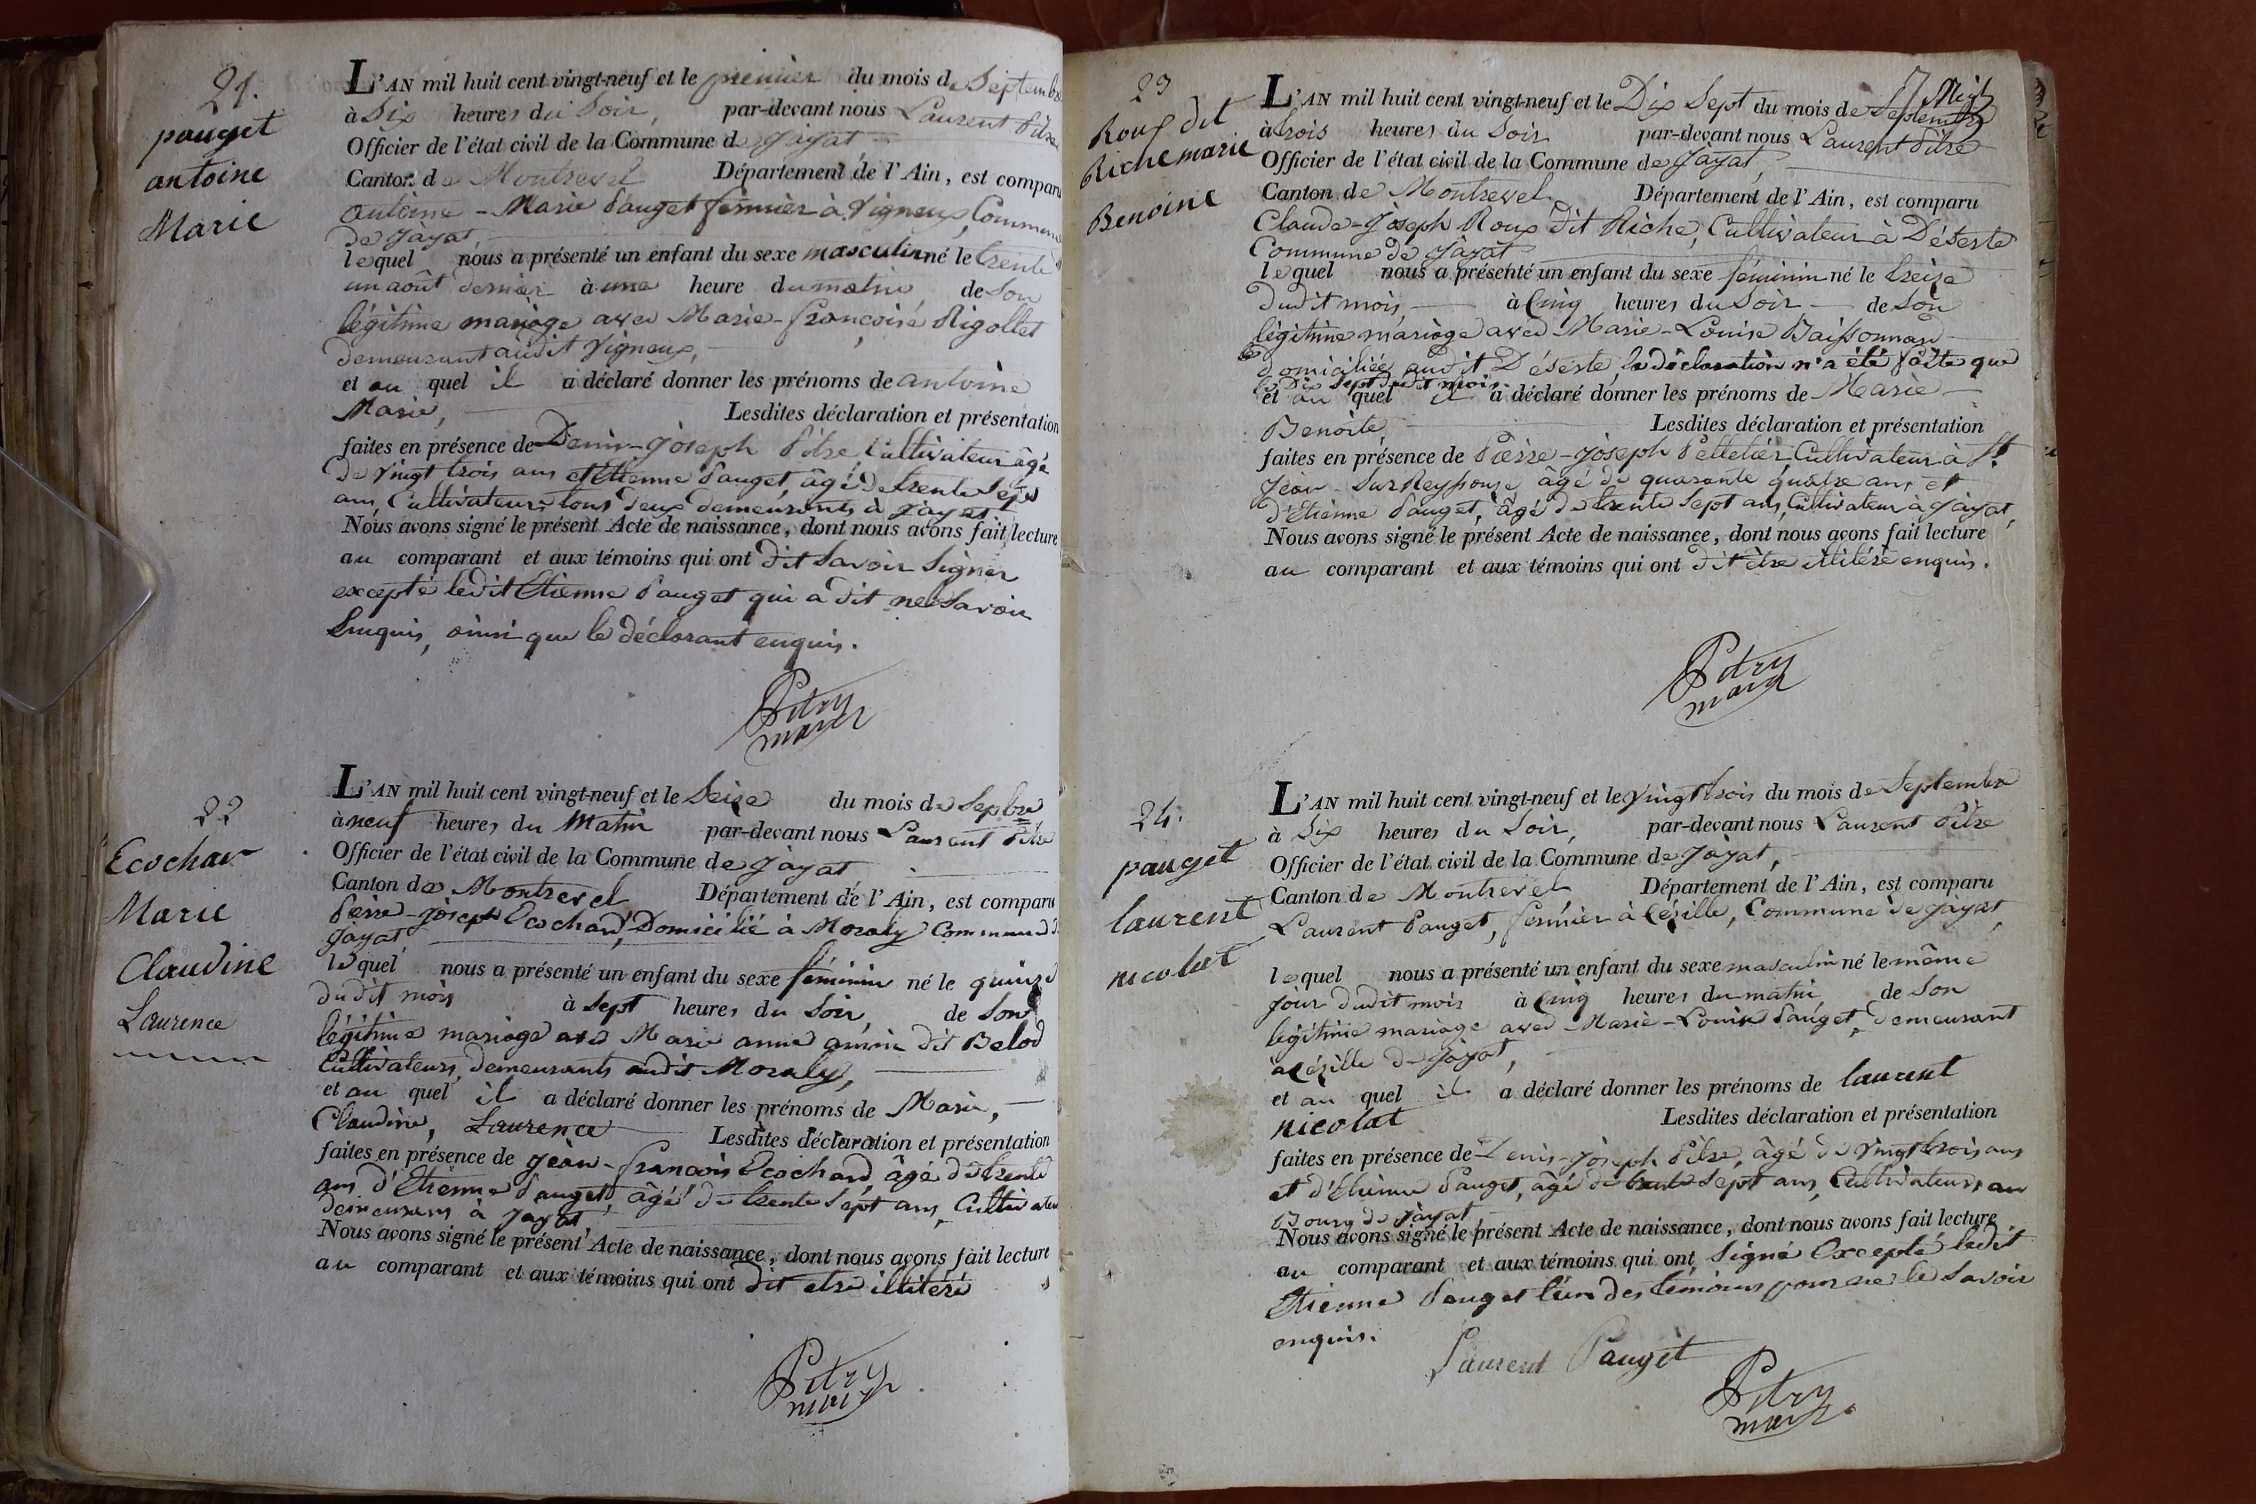 21.
pauget
antoine
Marie
L'AN mil huit cent vingt-neuf et le premier du mois de Septembre
à Six heures du Soir, par-devant nous Laurent Pitre
Officier de l'état civil de la Commune de Jayat
Canton de Montrevel Département de l'Ain, est comparu
antoine-Marie Pauget fermier à Vigneux, Commune
de Jayat,
lequel nous a présenté un enfant du sexe masculin né le trente
un août dernier à une heure du matin de Son
légitime mariage avec Marie-françoise Rigollet
demeurant audit Vigneux,
et au quel il a déclaré donner les prénoms de antoine
Marie, Lesdites déclaration et présentation
faites en présence de Denis-Joseph Pitre Cultivateur âgé
de Vingt trois ans et Etienne Pauget, âgé de trente Sept
ans, Cultivateurs tous deux demeurants à Jayat
Nous avons signé le présent Acte de naissance, dont nous avons fait lecture
au comparant et aux témoins qui ont dit Savoir Signer
excepté ledit Etienne Pauget qui a dit ne Savoir
Enquis, ainsi que le déclarant enquis.
Pitre
maire
22
Ecochar
Marie
Claudine
Laurence
L'AN mil huit cent vingt-neuf et le Seize du mois de Sepbre
à neuf heures du Matin par-devant nous Laurent Pitre
Officier de l'état civil de la Commune de Jayat
Canton de Montrevel Département de l'Ain, est comparu
Pierre-Joseph Ecochard, Domicilié à Moraly Commune de
Jayat
lequel nous a présenté un enfant du sexe féminin né le quinze
dudit mois à Sept heures du Soir, de Son
légitime mariage avec Marie anne dit Belod
Cultivateurs, demeurants audit Moraly,
et au quel il a déclaré donner les prénoms de Marie,
Claudine, Laurence Lesdites déclaration et présentation
faites en présence de Jean-françois Ecochard, âgé de trente
ans d'Etienne Pauget, âgé de trente Sept ans, Cultivateurs
demeurans à Jayat,
Nous avons signé le présent Acte de naissance, dont nous avons fait lecture
au comparant et aux témoins qui ont dit etre illitéré
Pitre
maire
23
Roux dit
Riche marie
Benoine
L'AN mil huit cent vingt-neuf et le Dix Sept du mois de Septembre
à trois heures du Soir par-devant nous Laurent Pitre
Officier de l'état civil de la Commune de Jayat,
Canton de Montrevel Département de l'Ain, est comparu
Claude-Joseph Roux dit Riche, Cultivateur à Déserte
Commune de Jayat
lequel nous a présenté un enfant du sexe féminin né le treize
dudit mois, à Cinq heures du Soir de Son
légitime mariage avec Marie-Louise Baissonnard
domiciliée audit Déserte, la déclaration n'a été faite que
le Dix Sept dudit mois
et au quel il a déclaré donner les prénoms de Marie
Benoite, Lesdites déclaration et présentation
faites en présence de Pierre-Joseph Pelletier Cultivateur à St
Jean-Sur Reyssouze âgé de quarante quatre ans et
d'Etienne Pauget, âgé de trente Sept ans, Cultivateur à Jayat,
Nous avons signé le présent Acte de naissance, dont nous avons fait lecture
au comparant et aux témoins qui ont dit être illitéré enquis.
Pitre
maire
24.
pauget
laurent
nicolat
L'AN mil huit cent vingt-neuf et le Vingt trois du mois de Septembre
à Six heures du Soir, par-devant nous Laurent Pitre
Officier de l'état civil de la Commune de Jayat,
Canton de Montrevel Département de l'Ain, est comparu
Laurent Pauget, fermier à Cézille, Commune de Jayat,
lequel nous a présenté un enfant du sexe masculin né le même
Jour dudit mois à Cinq heures du matin, de Son
légitime mariage avec Marie-Louise Pauget, demeurant
à Cézille de Jayat,
et au quel il a déclaré donner les prénoms de laurent
nicolat Lesdites déclaration et présentation
faites en présence de Denis-Joseph Pitre, âgé de Vingt trois ans
et d'Etienne Pauget, âgé de trente Sept ans, Cultivateurs au
Bourg de Jayat,
Nous avons signé le présent Acte de naissance, dont nous avons fait lecture
au comparant et aux témoins qui ont Signé Excepté ledit
Etienne Pauget l'un des témoins pour ne le Savoir
enquis.
Laurent Pauget
Pitre
maire